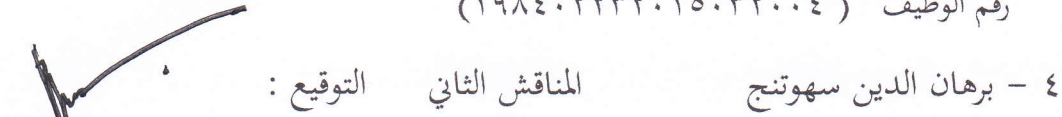 رقم الوظيف (١٩٨٤٠٢٢٢٢٠١٥٠٣٢٠٠٤)
٤ - برهان الدين سهوتنج المناقش الثاني التوقيع :